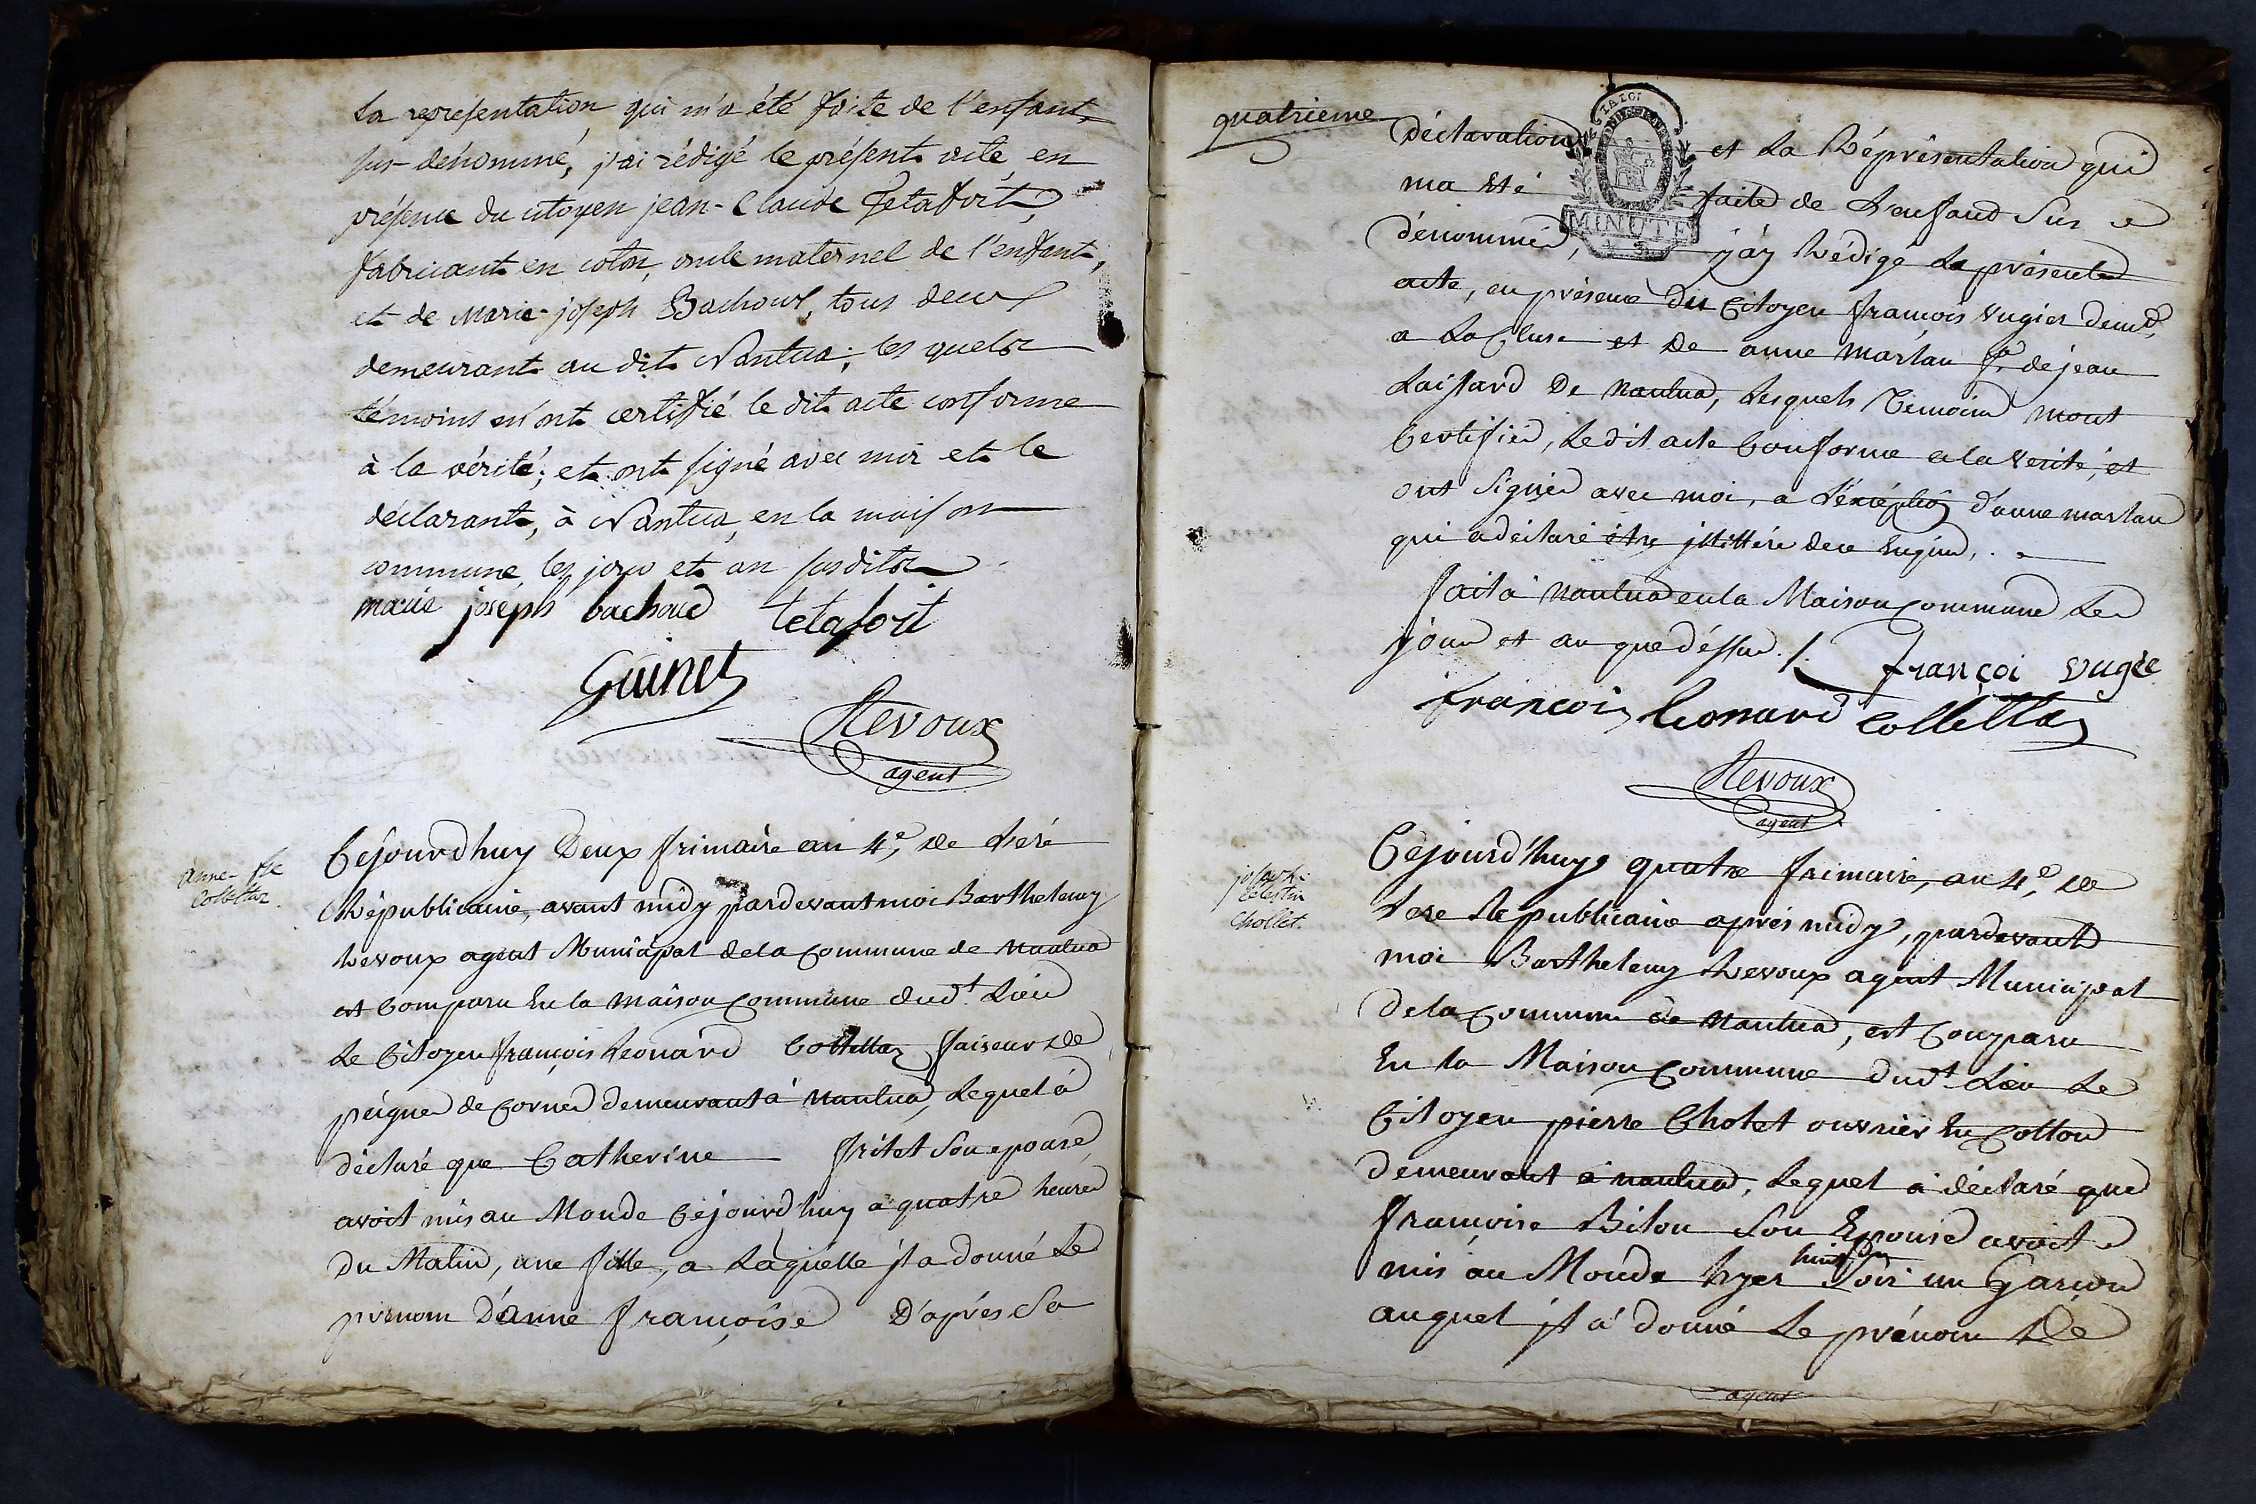 la representation qui m'a été faite de l'enfant
sus-dénommé, j'ai rédigé le présent acte, en
présence du citoyen jean-Claude Tetafort,
fabricant en coton, oncle maternel de l'enfant,
et de Marie-joseph Bachoud, tous deux
demeurant au dit Nantua; les quels
témoins m'ont certifié le dit acte conforme
à la vérité; et ont signé avec moi et le
déclarant, à Nantua, en la maison
commune, les jour et an susdits
marie joseph bachoud tetafort
Guinet
Revoux
agent
anne-fse
Collettaz.
Cejourdhuy Deux frimaire an 4e, de L'eré
Républicaine, avant midy pardevant moi Barthelemy
Revoux agent Municipal de la Commune de Nantua
est Comparu En la maison Commune dudt. Lieu
Le Citoyen françois Leonard Collettaz faiseur de
peigne de Corne demeurant à nantua, Lequel à
déclaré que Catherine fritet Son epouse
avoit mis au Monde Cejourdhuy a quatre heures
du Matin, une fille, a Laquelle jl a donné Le
prenom D'anne françoise D'après Sa
quatrieme
déclaration et La Réprésentation qui
ma Eté faite de L'enfant Sus
dénommé, j'ay Rédigé Le présent
MINUTE
acte, en présence du Citoyen françois vugier demt.
a La Cluse et De anne marlan fe. de jean
Laissard De nantua, Lesquels Témoins mont
Certifié, Le dit acte Conforme a la Verité, et
ont Signé avec moi, a L'éxcéption d'anne marlan
qui a déclaré être jllittéré de ce Enquise,
fait à nantua en la Maison Commune Les
jour et an que déssus./.
françoi vugée
francois Leonard Collettaz
Revoux
agent
joseph-
Celestin
Chollet.
Cejourd'huy quatre frimaire, an 4e, de
L'ere Republicaine après midy, pardevant
moi Barthelemy Revoux agent Municipal
de la Commune de Nantua, est Comparu
En la Maison Commune dudt. Lieu Le
Citoyen pierre Cholet ouvrier En Cotton
demeurant à nantua, Lequel à déclaré que
françoise Bilon Son Epouse avoit
mis au Monde hyer huit du Soir un Garçon
auquel jl à donné Le prénom De
agent